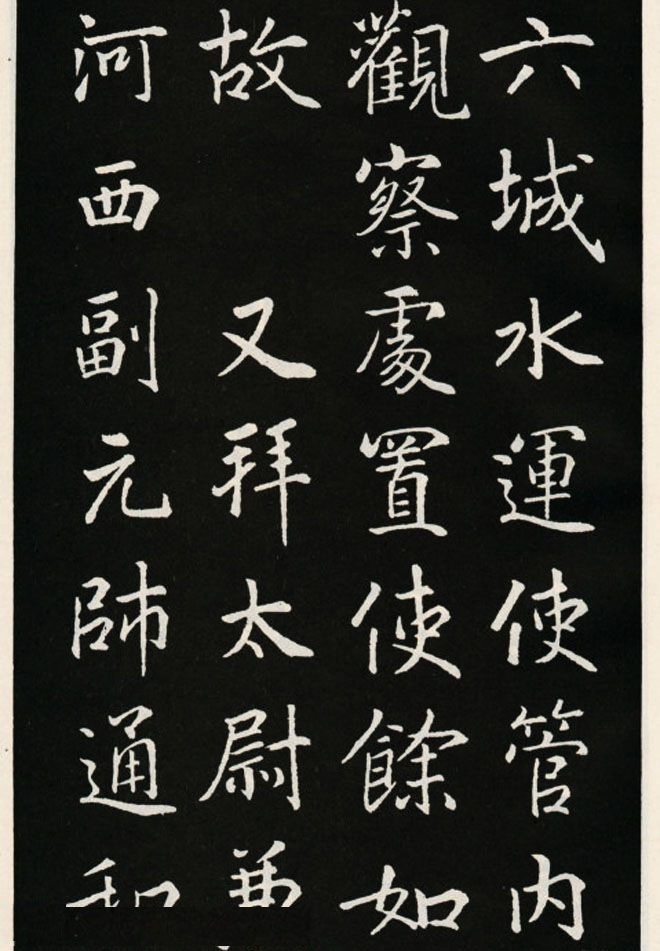 六城水運使管内
觀察處置使餘如
故 又拜太尉兼
河西副元帥通和